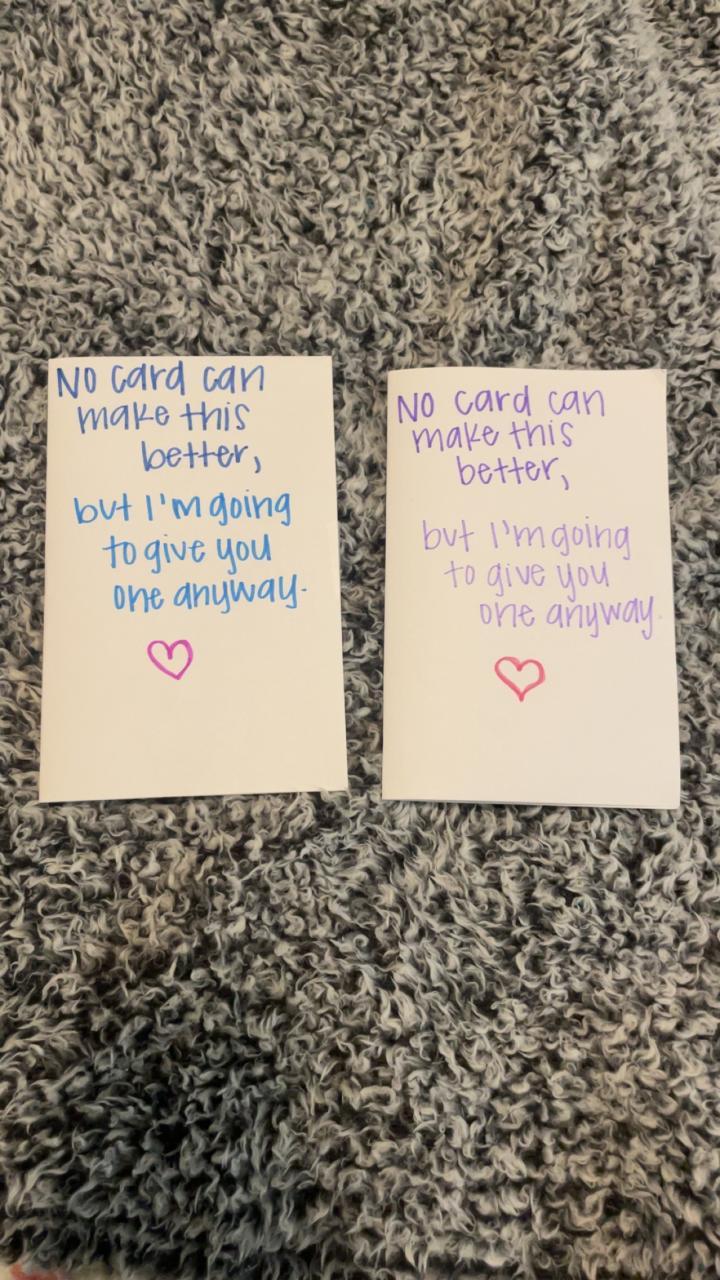 NO card can
make this
better,
but I'm going
to give you
one anyway.
NO card can
make this
better,
but I'm going
to give you
one anyway.